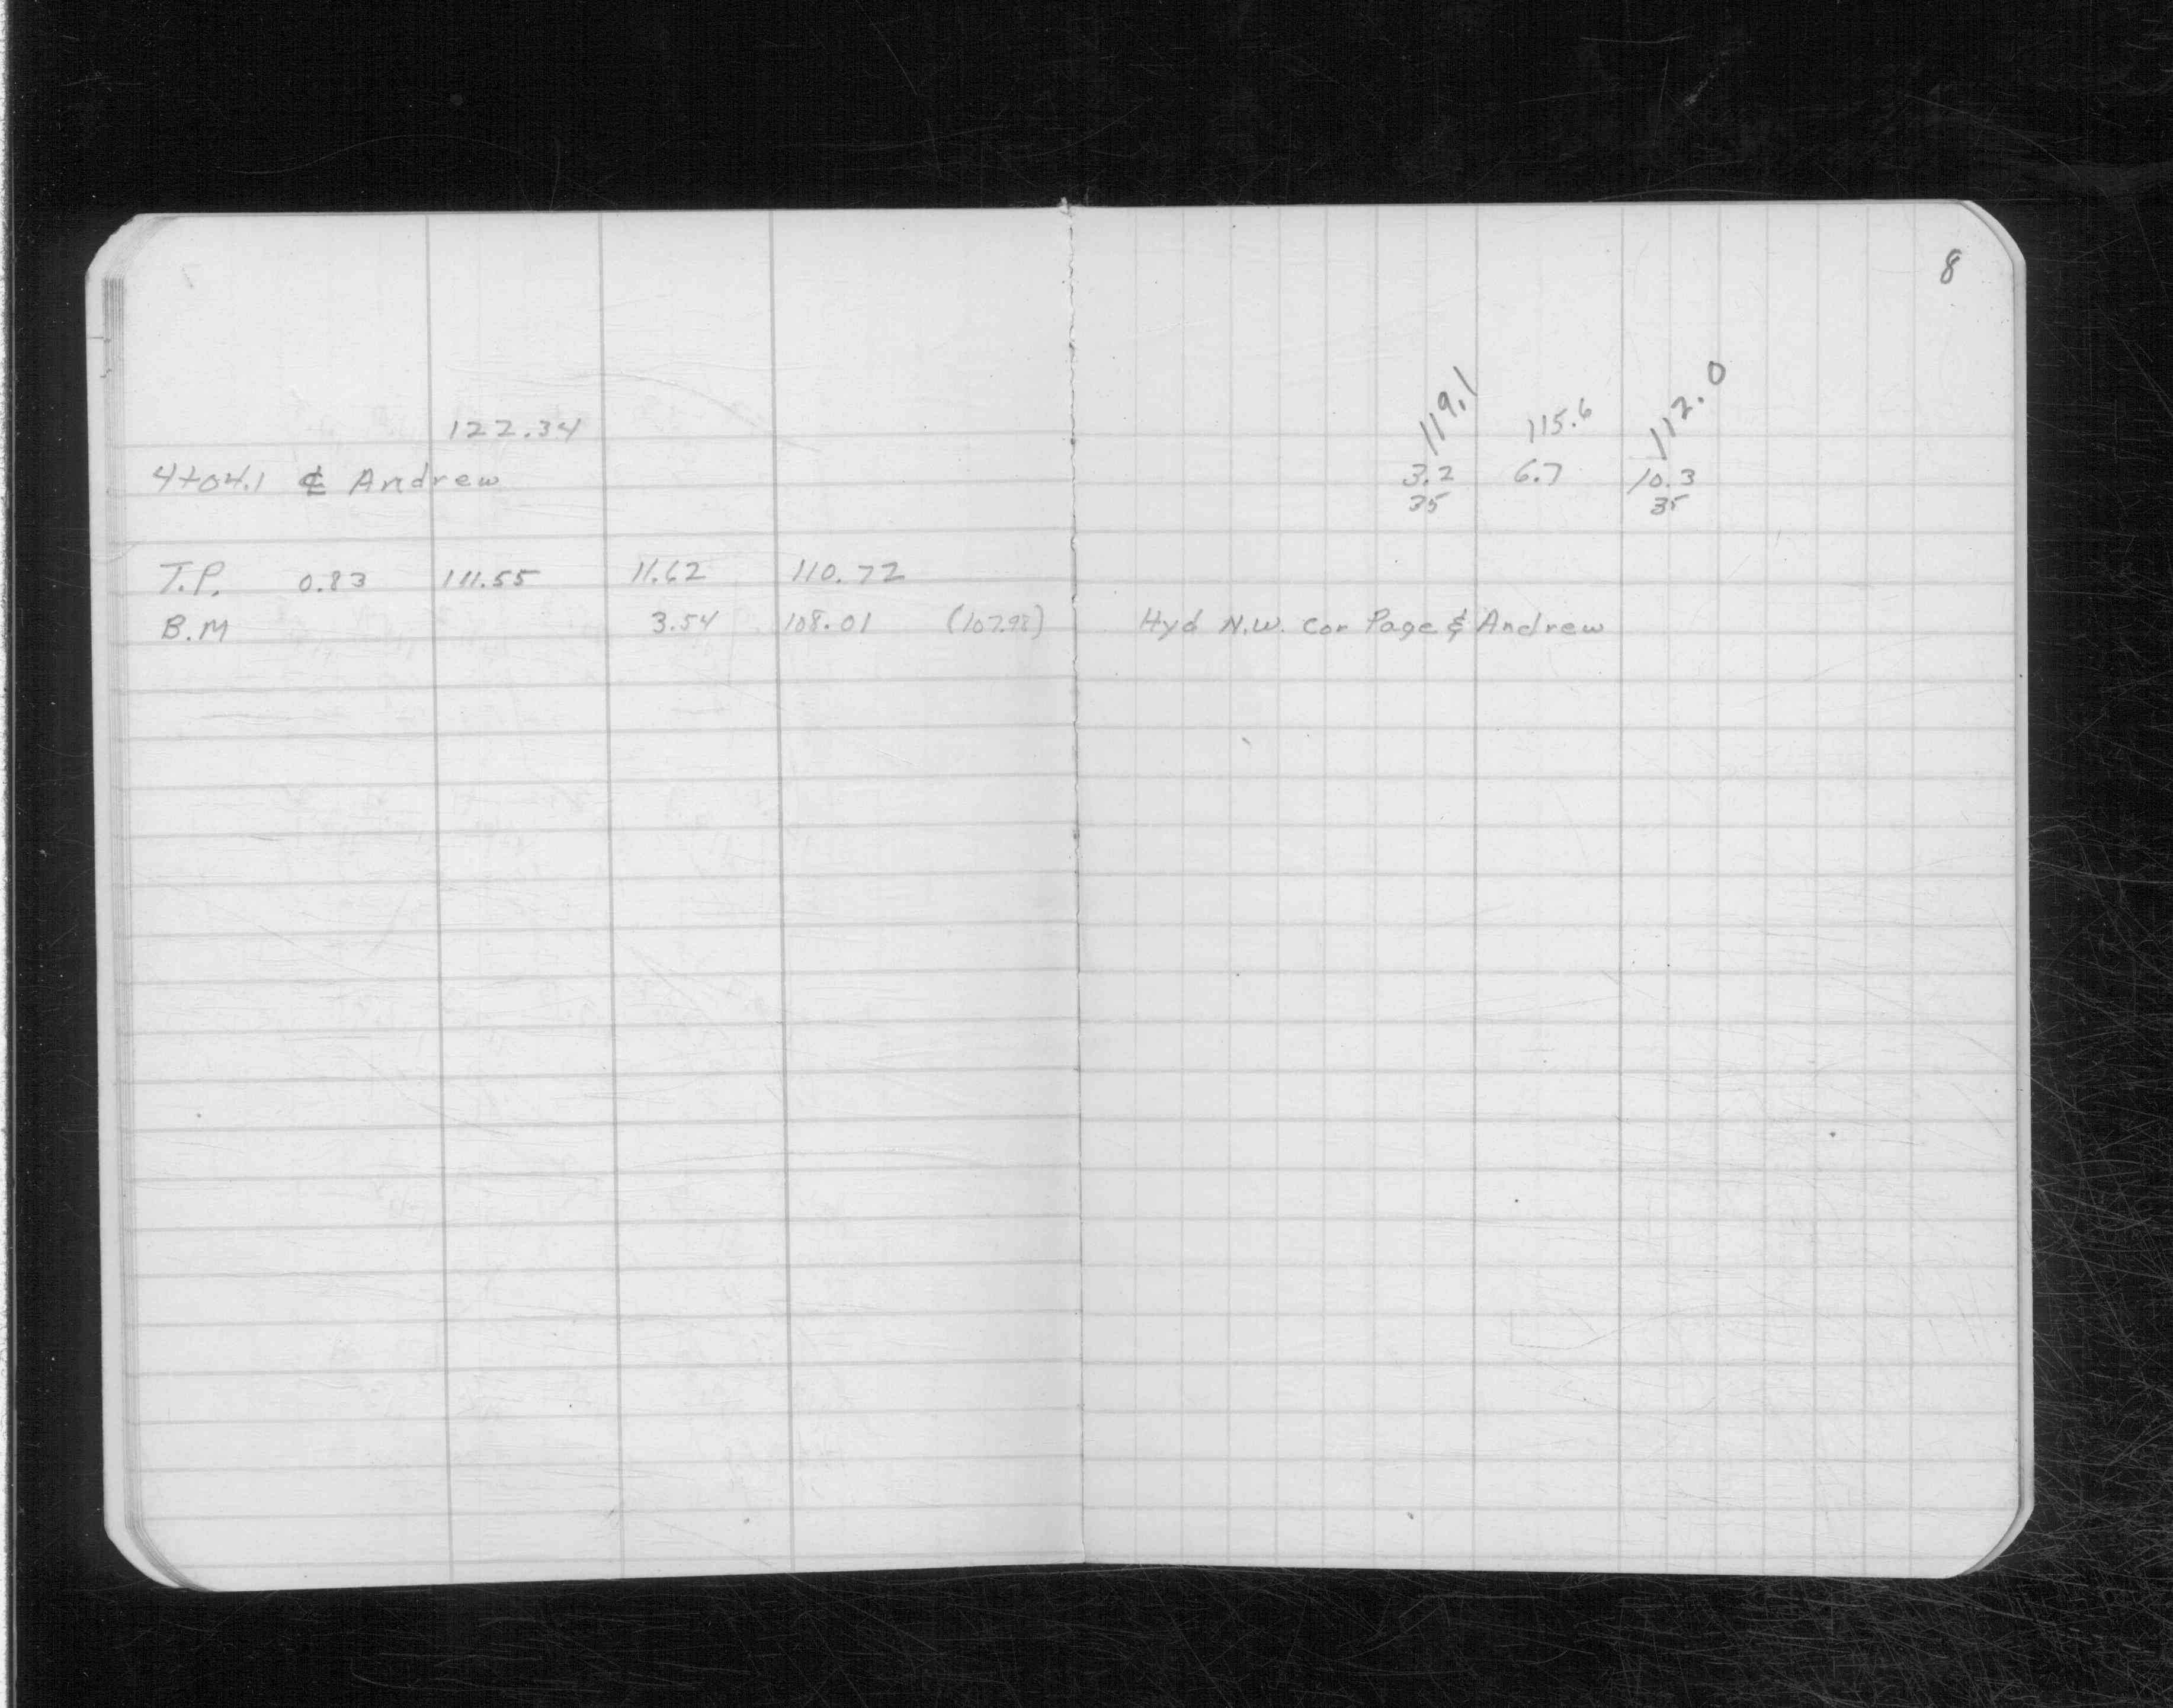 8
122.34
119.1 115.6 112.0
4+04.1 ℄ Andrew
3.2 6.7 10.3
35 35
T.P. 0.83 111.55 11.62 110.72
B.M 3.54 108.01 (107.98) Hyd N.W. Cor Page & Andrew